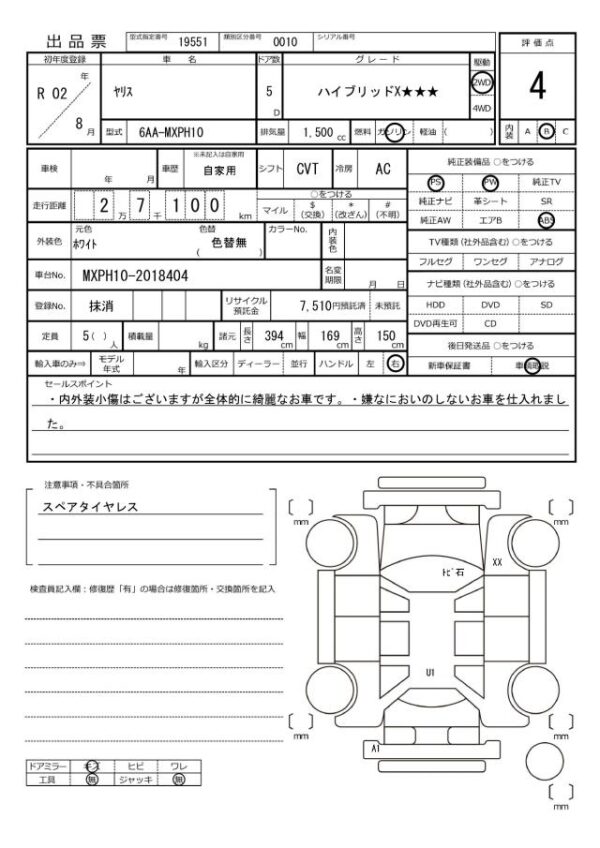 出品票 型式指定番号 19551 類別区分番号 0010 シリアル番号
評価点
初年度登録 車名 ドア数 グレード 駆動
R 02 年 8 月 ヤリス 5 D ハイブリッドX★★★ 2WD 4WD 4
型式 6AA-MXPH10 排気量 1,500 cc 燃料 ガソリン 軽油 ( ) 内装 A B C
車検 年 月 車歴 ※未記入は自家用 自家用 シフト CVT 冷房 AC
純正装備品 ○をつける
PS PW 純正TV
走行距離 2 万 7 千 1 0 0 km ○をつける マイル $ (交換) * (改ざん) # (不明)
純正ナビ 革シート SR
純正AW エアB ABS
外装色 元色 ホワイト 色替 色替無 ( ) カラーNo. 内装色
TV種類 (社外品含む) ○をつける
フルセグ ワンセグ アナログ
車台No. MXPH10-2018404 名変期限 月 日
ナビ種類 (社外品含む) ○をつける
登録No. 抹消 リサイクル預託金 7,510円預託済 未預託
HDD DVD SD
DVD再生可 CD
定員 5 ( ) 人 積載量 kg 諸元 長さ 394 cm 幅 169 cm 高さ 150 cm
後日発送品 ○をつける
輸入車のみ⇒ モデル年式 年 輸入区分 ディーラー 並行 ハンドル 左 右
新車保証書 車輌取説
セールスポイント
・内外装小傷はございますが全体的に綺麗なお車です。・嫌なにおいのしないお車を仕入れまし
た。
注意事項・不具合箇所
スペアタイヤレス
検査員記入欄：修復歴「有」の場合は修復箇所・交換箇所を記入
[ ] mm
[ ] mm
トビ石
XX
U1
[ ] mm
[ ] mm
A1
[ ] mm
ドアミラー キズ ヒビ ワレ
工具 無 ジャッキ 無